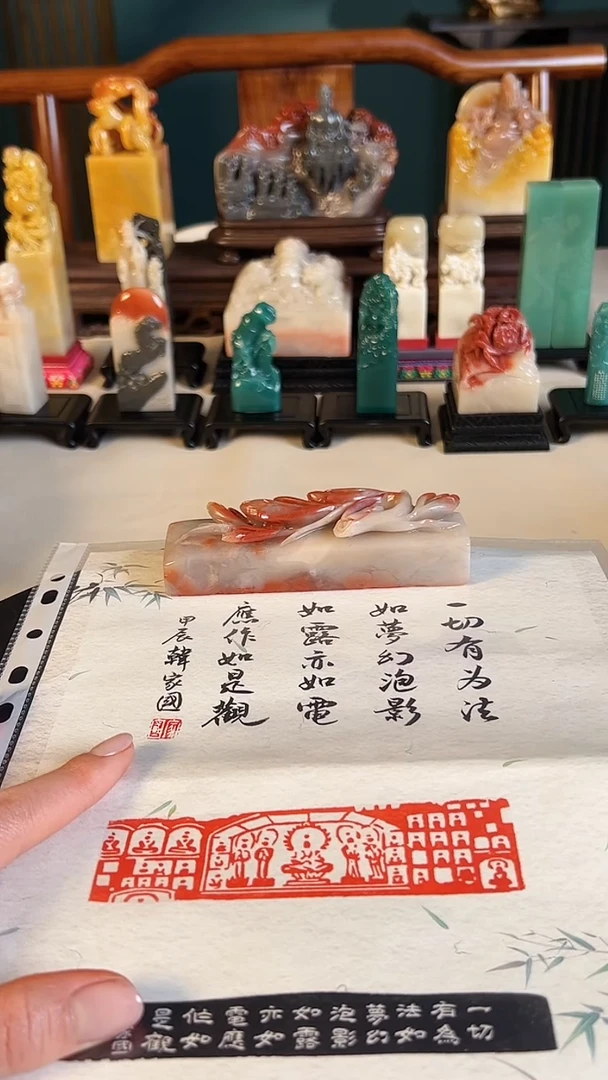 一切有为法
如夢幻泡影
如露亦如電
應作如是觀
甲辰 韓家國
一切
有為
法如
夢幻
泡影
如露
亦如
電應
作如
是觀
國